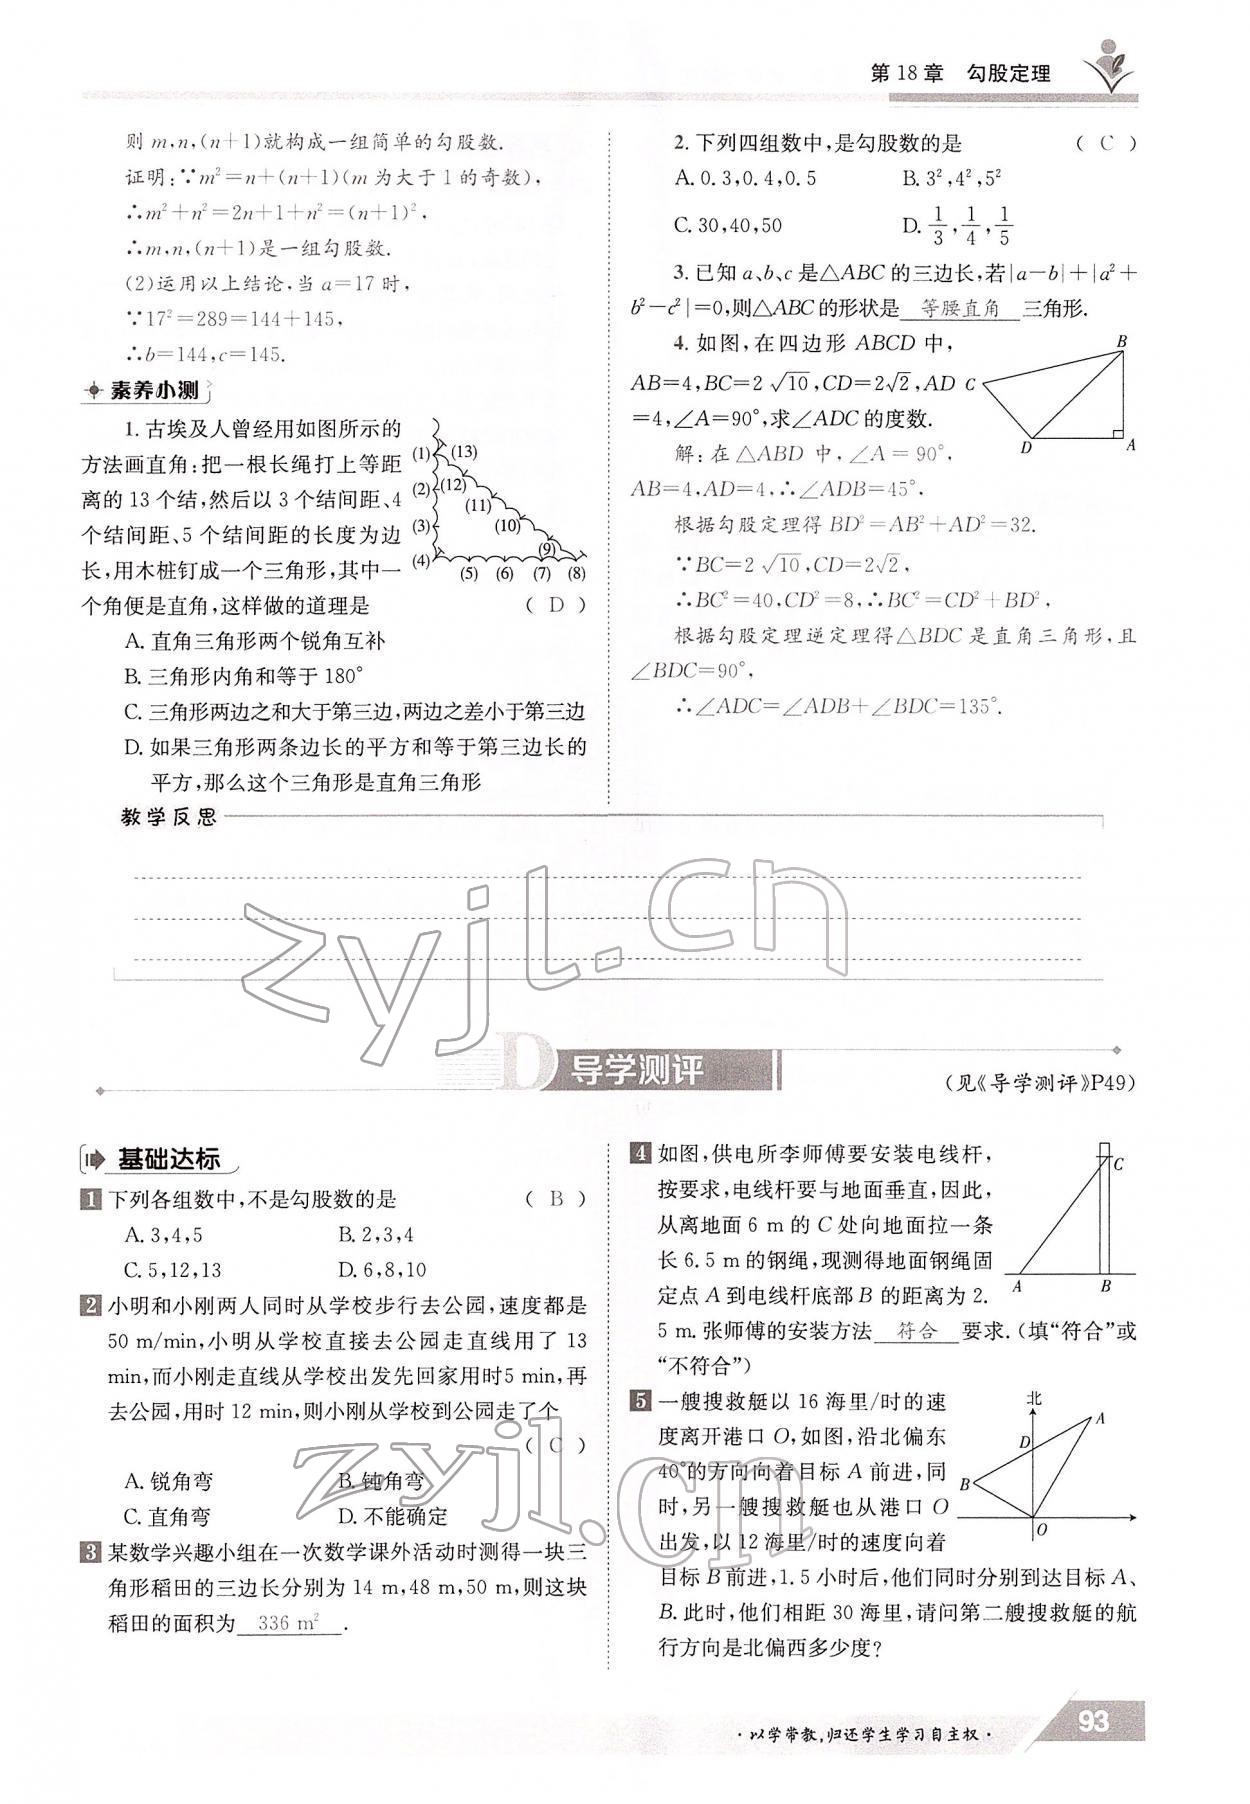 第 18 章 勾股定理
则 m,n,(n+1)就构成一组简单的勾股数.
证明:∵m²=n+(n+1)(m 为大于 1 的奇数),
∴m²+n²=2n+1+n²=(n+1)²,
∴m,n,(n+1)是一组勾股数.
(2)运用以上结论,当 a=17 时,
∵17²=289=144+145,
∴b=144,c=145.
素养小测
1. 古埃及人曾经用如图所示的
方法画直角:把一根长绳打上等距
离的 13 个结,然后以 3 个结间距、4
个结间距、5 个结间距的长度为边
长,用木桩钉成一个三角形,其中一
个角便是直角,这样做的道理是 ( D )
(1) (13)
(2) (12)
(11)
(3) (10)
(9)
(4) (5) (6) (7) (8)
A. 直角三角形两个锐角互补
B. 三角形内角和等于 180°
C. 三角形两边之和大于第三边,两边之差小于第三边
D. 如果三角形两条边长的平方和等于第三边长的
平方,那么这个三角形是直角三角形
2. 下列四组数中,是勾股数的是 ( C )
A. 0.3,0.4,0.5 B. 3²,4²,5²
C. 30,40,50 D. 1/3,1/4,1/5
3. 已知 a、b、c 是△ABC 的三边长,若|a−b|+|a²+
b²−c²|=0,则△ABC 的形状是 等腰直角 三角形.
4. 如图,在四边形 ABCD 中,
AB=4,BC=2√10,CD=2√2,AD
=4,∠A=90°,求∠ADC 的度数.
B
C
D
A
解:在△ABD 中,∠A=90°,
AB=4,AD=4,∴∠ADB=45°.
根据勾股定理得 BD²=AB²+AD²=32.
∵BC=2√10,CD=2√2,
∴BC²=40,CD²=8,∴BC²=CD²+BD²,
根据勾股定理逆定理得△BDC 是直角三角形,且
∠BDC=90°,
∴∠ADC=∠ADB+∠BDC=135°.
教学反思
zyjl.cn
D 导学测评
(见《导学测评》P49)
基础达标
1 下列各组数中,不是勾股数的是 ( B )
A. 3,4,5 B. 2,3,4
C. 5,12,13 D. 6,8,10
2 小明和小刚两人同时从学校步行去公园,速度都是
50 m/min,小明从学校直接去公园走直线用了 13
min,而小刚走直线从学校出发先回家用时5 min,再
去公园,用时 12 min,则小刚从学校到公园走了个
( C )
A. 锐角弯 B. 钝角弯
C. 直角弯 D. 不能确定
3 某数学兴趣小组在一次数学课外活动时测得一块三
角形稻田的三边长分别为 14 m,48 m,50 m,则这块
稻田的面积为 336 m² .
4 如图,供电所李师傅要安装电线杆,
按要求,电线杆要与地面垂直,因此,
从离地面 6 m 的 C 处向地面拉一条
长 6.5 m 的钢绳,现测得地面钢绳固
定点 A 到电线杆底部 B 的距离为 2.
5 m. 张师傅的安装方法 符合 要求.(填“符合”或
“不符合”)
C
A
B
5 一艘搜救艇以 16 海里/时的速
度离开港口 O,如图,沿北偏东
40°的方向向着目标 A 前进,同
时,另一艘搜救艇也从港口 O
出发,以 12 海里/时的速度向着
目标 B 前进,1.5 小时后,他们同时分别到达目标 A、
B. 此时,他们相距 30 海里,请问第二艘搜救艇的航
行方向是北偏西多少度?
北
A
D
B
O
zyjl.cn
·以学带教,归还学生学习自主权·
93